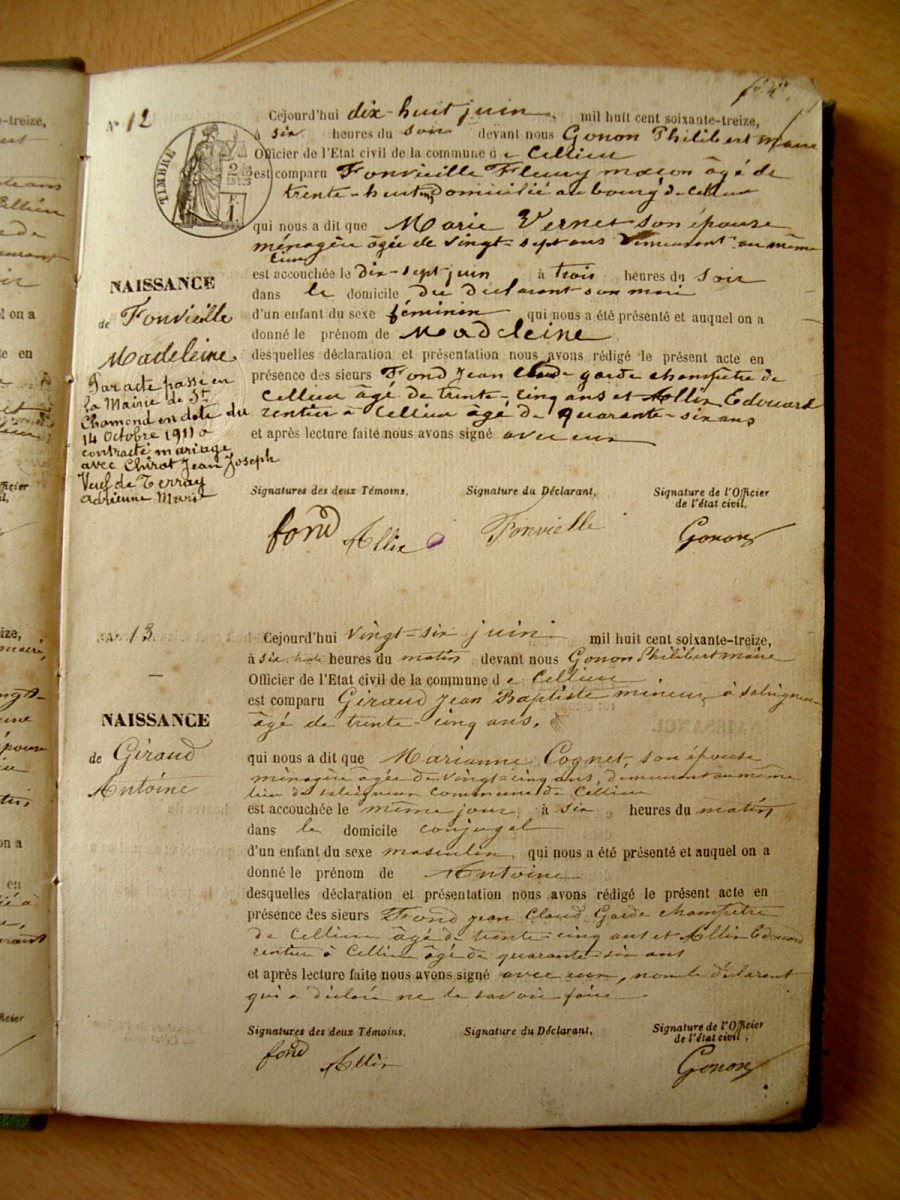 Nº 12
TIMBRE
Cejourd'hui dix-huit juin mil huit cent soixante-treize,
à six heures du soir devant nous Gonon Philibert maire
Officier de l'Etat civil de la commune de Cellieu
est comparu Fonvieille Fleury maçon âgé de
trente-huit ans domicilié au bourg de Cellieu
qui nous a dit que Marie Vernet son épouse
ménagère âgée de vingt-sept ans demeurant au même
lieu
est accouchée le dix-sept juin à trois heures du soir
dans le domicile du déclarant son mari
d'un enfant du sexe féminin qui nous a été présenté et auquel on a
donné le prénom de Madeleine
desquelles déclaration et présentation nous avons rédigé le présent acte en
présence des sieurs Fond Jean Claude garde champêtre de
Cellieu âgé de trente-cinq ans et Allix Edouard
rentier à Cellieu âgé de quarante-six ans
et après lecture faite nous avons signé avec eux
NAISSANCE
de Fonvieille
Madeleine
Par acte passé en
la Mairie de St
Chamond en date du
14 Octobre 1911 a
contracté mariage
avec Chirot Jean Joseph
Veuf de Terray
Adrienne Marie
Signatures des deux Témoins, Signature du Déclarant, Signature de l'Officier
de l'état civil,
fond Allix Fonvielle Gonon
Nº 13
Cejourd'hui vingt-six juin mil huit cent soixante-treize,
à six heures du matin devant nous Gonon Philibert maire
Officier de l'Etat civil de la commune de Cellieu
est comparu Giraud Jean Baptiste mineur à
âgé de trente-cinq ans.
NAISSANCE
de Giraud
Antoine
qui nous a dit que Marianne Cognet, son épouse
ménagère âgée de vingt-cinq ans, demeurant au même
lieu de commune de Cellieu
est accouchée le même jour à six heures du matin
dans le domicile conjugal
d'un enfant du sexe masculin qui nous a été présenté et auquel on a
donné le prénom de Antoine
desquelles déclaration et présentation nous avons rédigé le présent acte en
présence des sieurs Fond Jean Claud Garde champêtre
de Cellieu âgé de trente-cinq ans et Allix Edouard
rentier à Cellieu âgé de quarante-six ans
et après lecture faite nous avons signé avec eux, non le déclarant
qui a déclaré ne le savoir faire
Signatures des deux Témoins, Signature du Déclarant, Signature de l'Officier
de l'état civil,
fond Allix Gonon